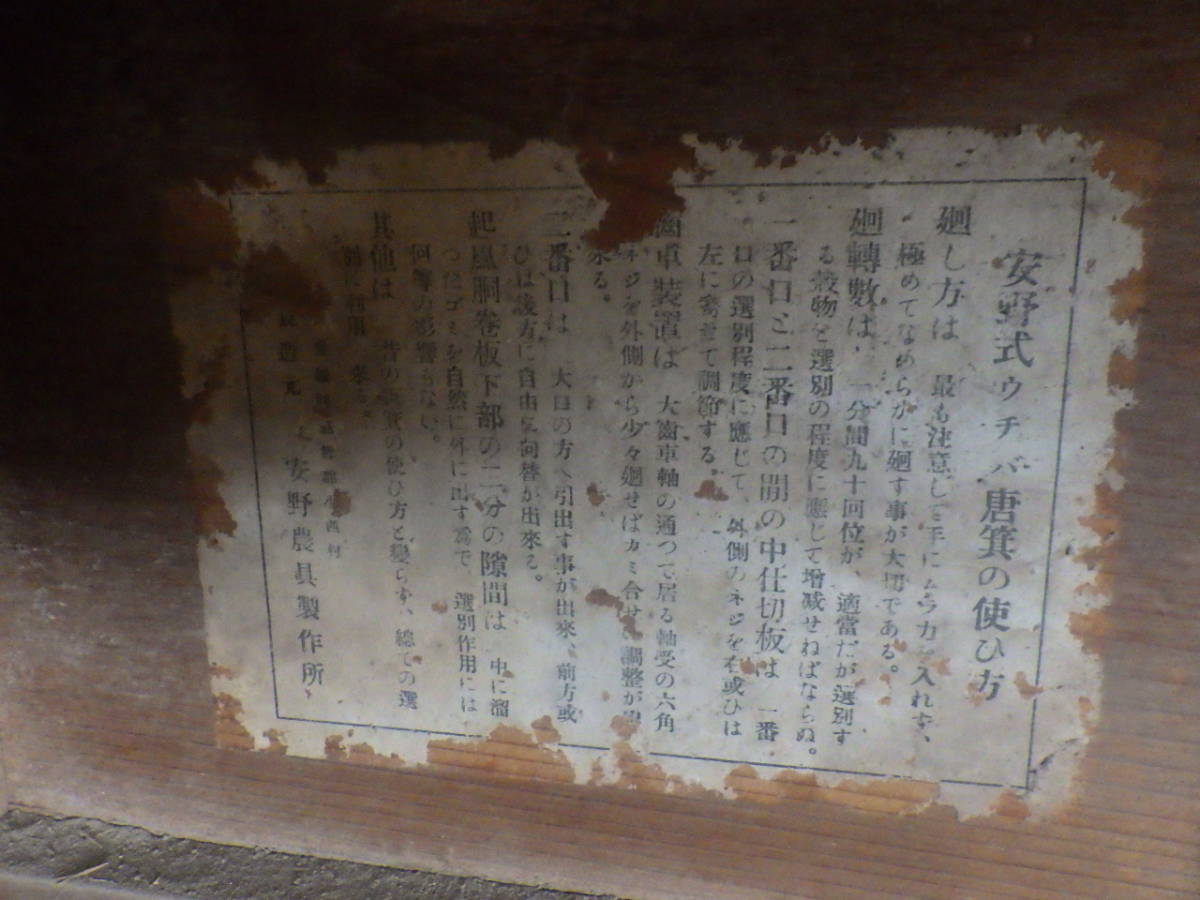 安野式ウチバ唐箕の使ひ方
廻し方は 最も注意して手にムラ力を入れず、
極めてなめらかに廻す事が大切である。
廻轉數は、一分間九十回位が、適當だが選別す
る穀物と選別の程度に應じて增減せねばならぬ。
一番口と二番口の間の中仕切板は 一番
口の選別程度に應じて、外側のネジを右或ひは
左に寄せて調節する。
齒車装置は 大齒車軸の通つて居る軸受の六角
ネジを外側から少々廻せばカミ合せ調整が出
來る。
二番口は 大口の方へ引出す事が出來、前方或
ひは後方に自由に向替が出來る。
起風胴卷板下部の二分の隙間は 中に溜
つたゴミを自然に外に出す爲で、選別作用には
何等の影響もない。
其他は 昔の唐箕の使ひ方と變らず、總ての選
別に利用 來る。
村
造元 安野農具製作所